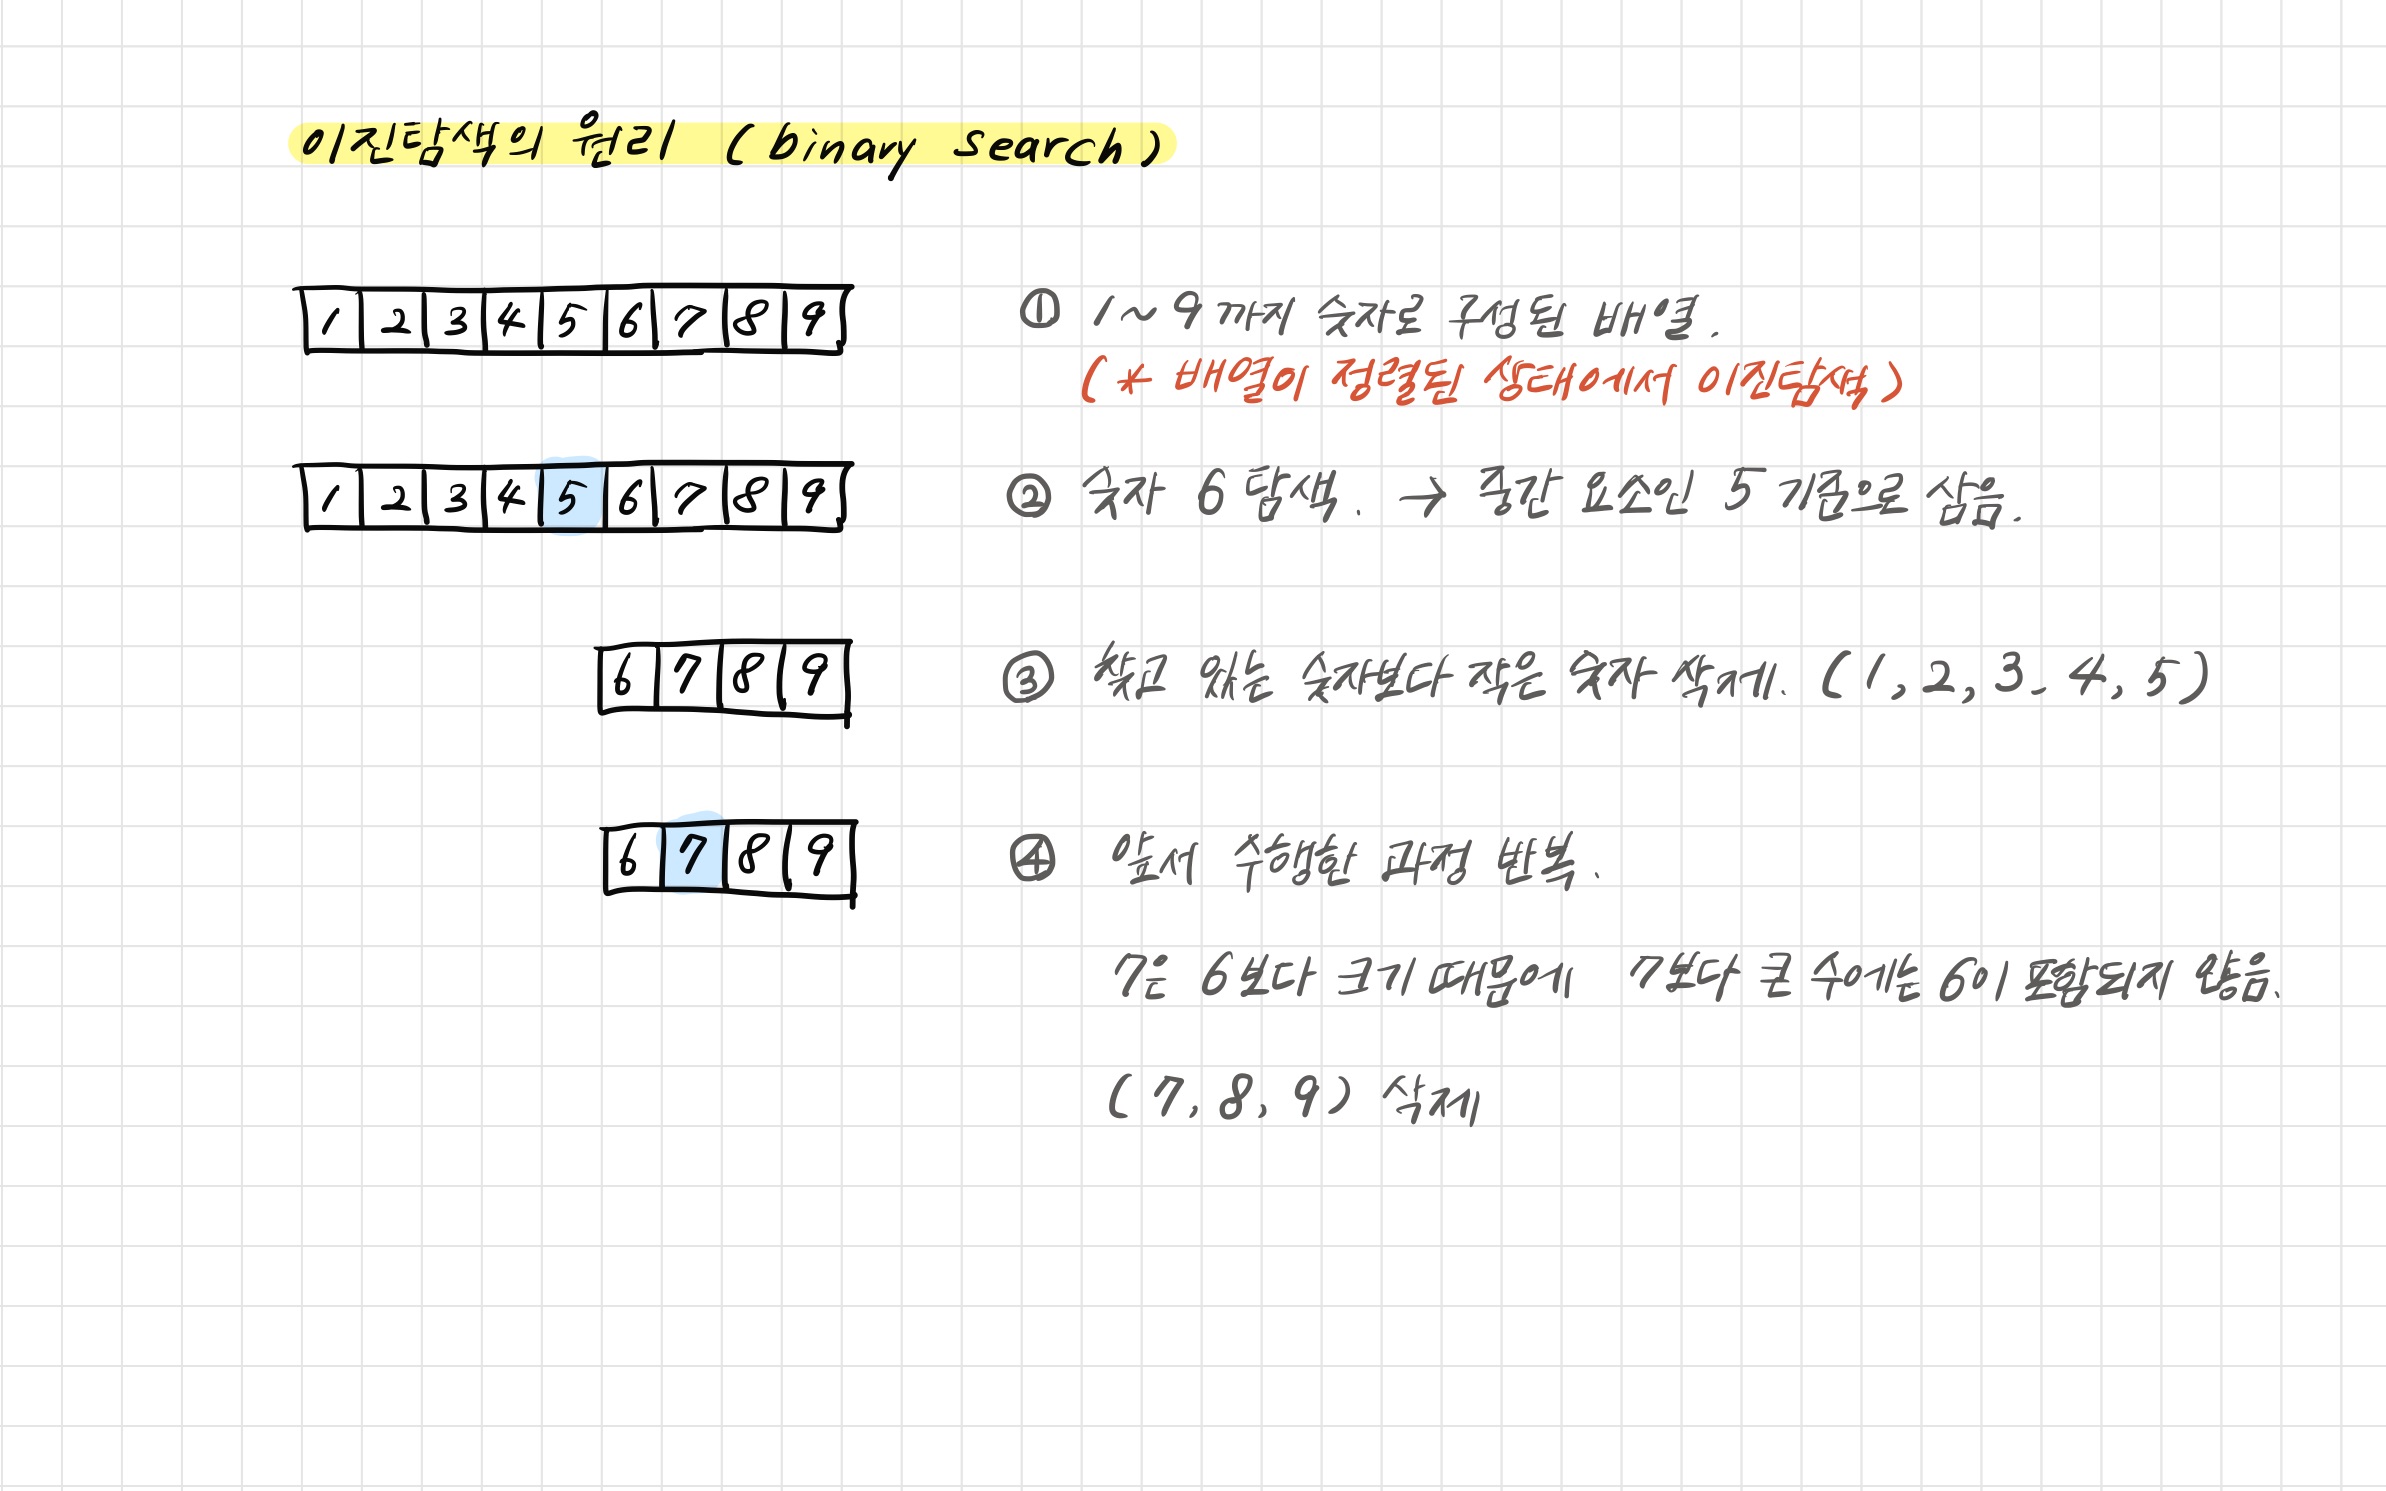 이진탐색의 원리 (binary search)
1 2 3 4 5 6 7 8 9
① 1~9까지 숫자로 구성된 배열.
(* 배열이 정렬된 상태에서 이진탐색)
1 2 3 4 5 6 7 8 9
② 숫자 6 탐색. → 중간 요소인 5 기준으로 삼음.
6 7 8 9
③ 찾고 있는 숫자보다 작은 숫자 삭제. (1, 2, 3. 4, 5)
6 7 8 9
④ 앞서 수행한 과정 반복.
7은 6보다 크기 때문에 7보다 큰 수에는 6이 포함되지 않음.
(7, 8, 9) 삭제